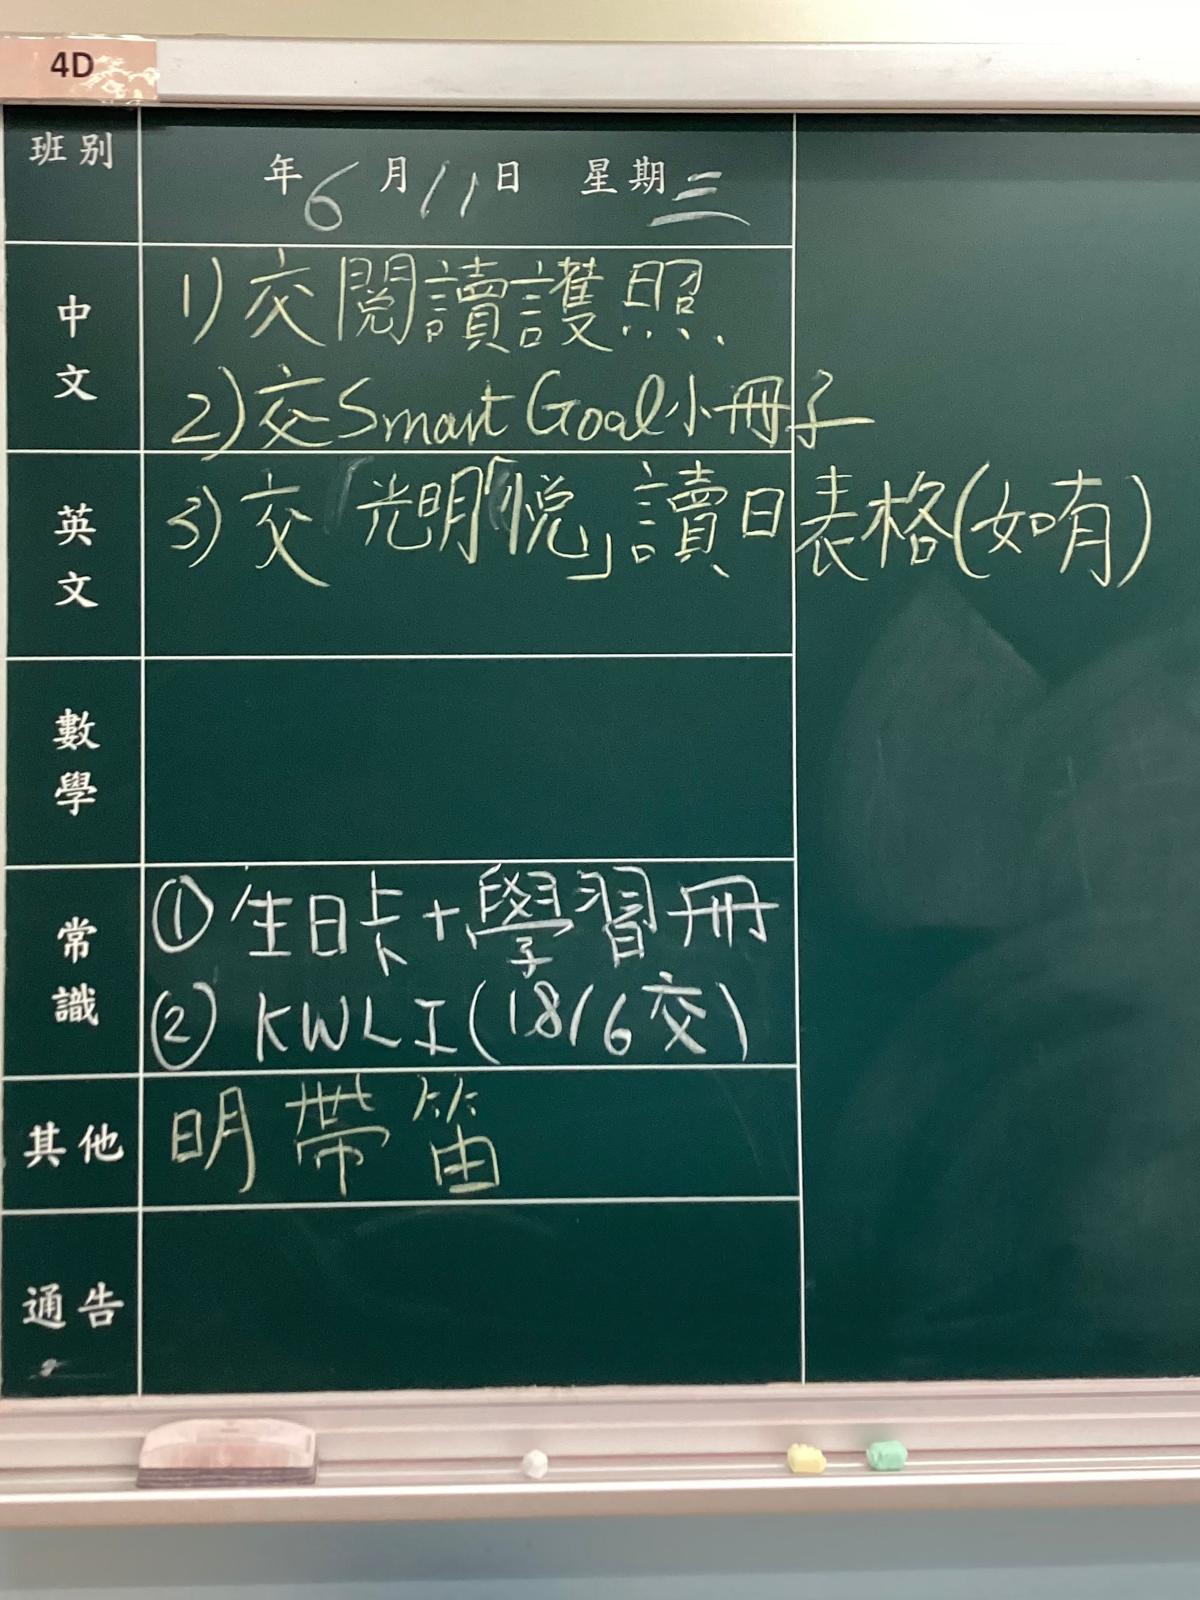 4D
班別
年6月11日 星期三
中文
1)交閱讀護照
2)交Smart Goal小冊子
英文
3)交「光明「悅」讀日表格(如有)
數學
常識
① 生日卡+學習冊
② KWL工(18/6交)
其他
明帶笛
通告